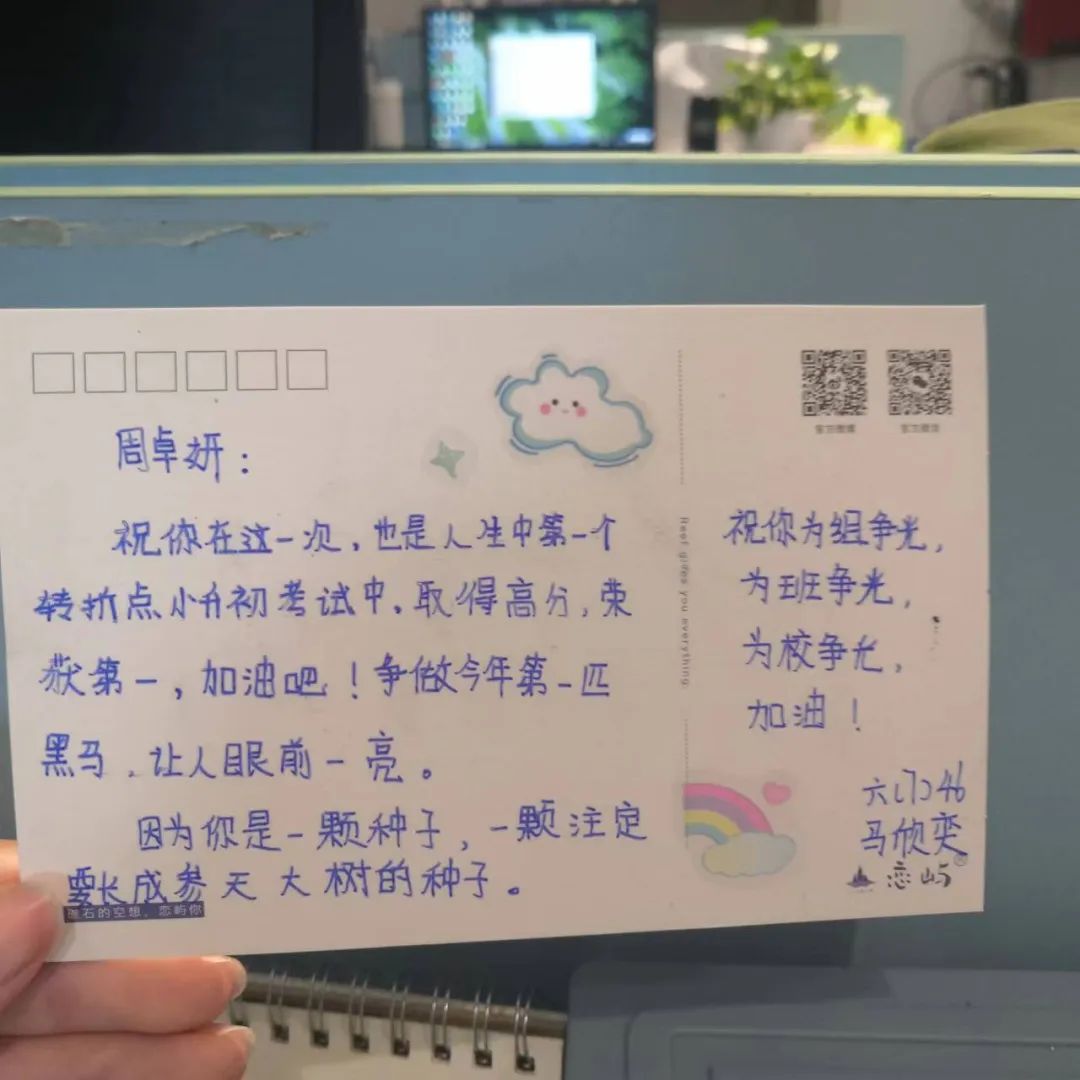 周卓妍：
祝你在这一次，也是人生中第一个
转折点小升初考试中，取得高分，荣
获第一，加油吧！争做今年第一匹
黑马，让人眼前一亮。
因为你是一颗种子，一颗注定
要长成参天大树的种子。
礁石的空想，恋屿你
Reef gifes you everything
官方微博
官方微信
祝你为组争光，
为班争光，
为校争光，
加油！
六(7)46
马欣奕
恋屿